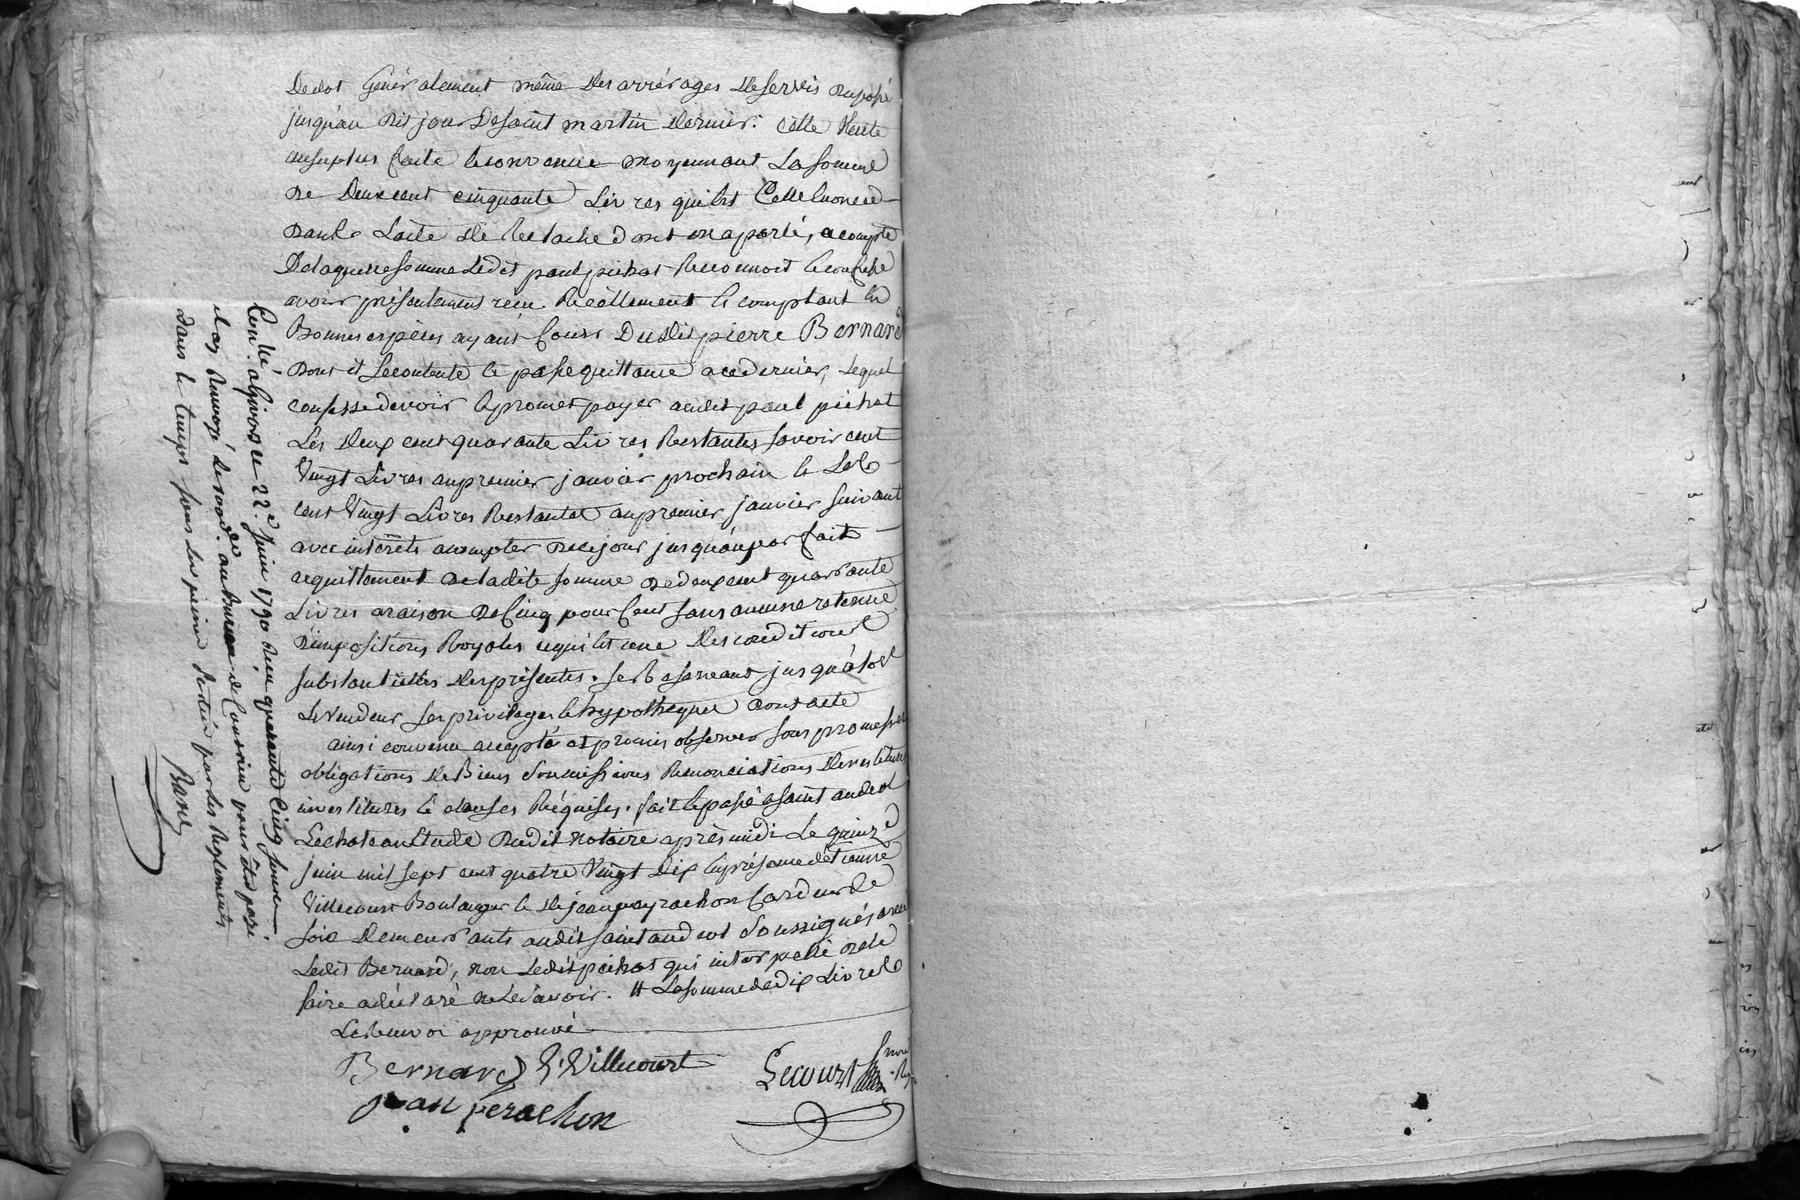 Dedot Généralement même Des arrérages De servis du passé
jusqu'au dit jour De saint martin Dernier. Cette Vente
ausurplus faite & convenue moyennant La somme
De Deux cent cinquante Livres qui est Celle énoncée
Dans L'acte De Relache dont on a parlé, acompte
De laquelle somme Ledit paul pichat Reconnoit & confesse
avoir présentement reçu Réellement & comptant En
Bonnes espèces ayant Cours Dudit pierre Bernard
Dont il se contente & passe quittance a ce dernier, Lequel
confesse devoir & promet payer audit paul pichat
Les Deux cent quarante Livres Restantes savoir cent
Vingt Livres au premier janvier prochain & Les
cent Vingt Livres Restantes au premier janvier suivant
avec intérêts a compter De ce jour jusqu'au parfait
acquittement de ladite somme de deux cent quarante
Livres a raison De Cinq pour Cent sans aucune retenue
D'impositions Royales ce qui est une Des conditions
substantielles Des présentes. se Réservant jusqu'à lors
Le vendeur ses privileges & hypotheques
ainsi convenu accepté et promis observer sous promesses
obligations De Biens soumissions Renonciations Devestitures
investitures & clauses Réquises. fait & passé a saint andeol
Le chateau Etude Dudit notaire après midi Le quinze
juin mil sept cent quatre Vingt Dix En présence d'Etienne
Villecourt Boulanger & De jean peyrachon Cardeur de
soie Demeurants audit saint andeol soussignés avec
Ledit Bernard, non Ledit pichat qui interpellé de le
faire a déclaré ne Le savoir. # La somme de dix Livres
Le Renvoi approuvé
Bernard E. Villecourt
jean perachon
Lecourt
Con.lé a givors ce 22e juin 1790 Reçu quarante Cinq sous
et ay Renvoyé Le au Bureau de Condrieu pour être payé
dans le temps sous les peines Portées par les Reglements